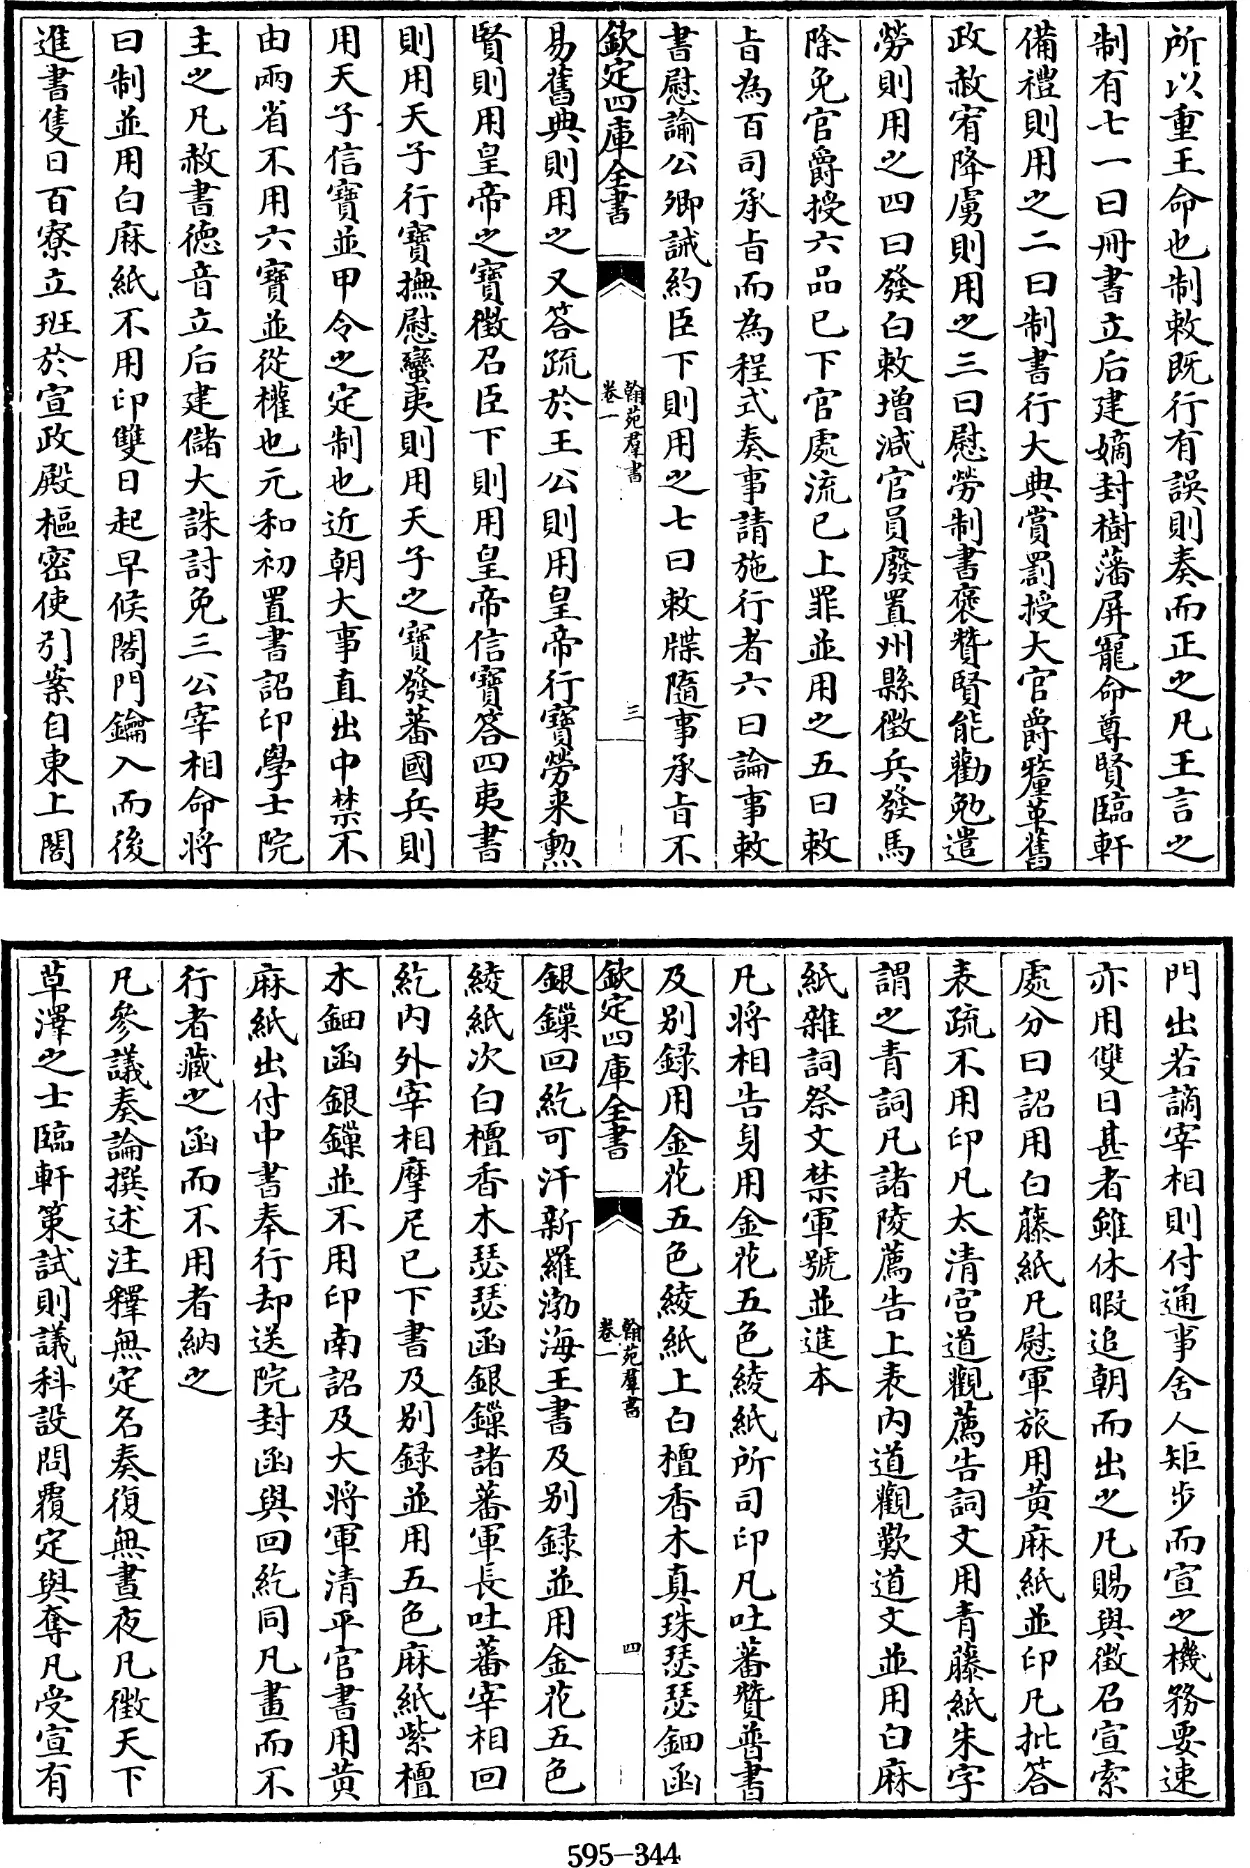 所以重王命也制敕既行有誤則奏而正之凡王言之
制有七一曰冊書立后建嫡封樹藩屏寵命尊賢臨軒
備禮則用之二曰制書行大典賞罰授大官爵釐革舊
政赦宥降虜則用之三曰慰勞制書褒贊賢能勸勉遣
勞則用之四曰發白敕增減官員廢置州縣徵兵發馬
除免官爵授六品已下官處流已上罪並用之五曰敕
旨為百司承旨而為程式奏事請施行者六曰論事敕
書慰諭公卿誡約臣下則用之七曰敕牒隨事承旨不
欽定四庫全書
翰苑羣書
卷一
三
易舊典則用之又答疏於王公則用皇帝行寶勞來勲
賢則用皇帝之寶徵召臣下則用皇帝信寶答四夷書
則用天子行寶撫慰蠻夷則用天子之寶發蕃國兵則
用天子信寶並甲令之定制也近朝大事直出中禁不
由兩省不用六寶並從權也元和初置書詔印學士院
主之凡赦書德音立后建儲大誅討免三公宰相命將
曰制並用白麻紙不用印雙日起早候閤門鑰入而後
進書隻日百寮立班於宣政殿樞密使引案自東上閤
門出若謫宰相則付通事舍人矩步而宣之機務要速
亦用雙日甚者雖休暇追朝而出之凡賜與徵召宣索
處分曰詔用白藤紙凡慰軍旅用黄麻紙並印凡批答
表疏不用印凡太清宫道觀薦告詞文用青藤紙朱字
謂之青詞凡諸陵薦告上表内道觀歎道文並用白麻
紙雜詞祭文禁軍號並進本
凡將相告身用金花五色綾紙所司印凡吐蕃贊普書
及别録用金花五色綾紙上白檀香木真珠瑟瑟鈿函
欽定四庫全書
翰苑羣書
卷一
四
銀鏁回紇可汗新羅渤海王書及别録並用金花五色
綾紙次白檀香木瑟瑟函銀鏁諸蕃軍長吐蕃宰相回
紇内外宰相摩尼已下書及别録並用五色麻紙紫檀
木鈿函銀鏁並不用印南詔及大將軍清平官書用黄
麻紙出付中書奉行却送院封函與回紇同凡畫而不
行者藏之函而不用者納之
凡參議奏論撰述注釋無定名奏復無晝夜凡徵天下
草澤之士臨軒策試則議科設問覆定與奪凡受宣有
595-344